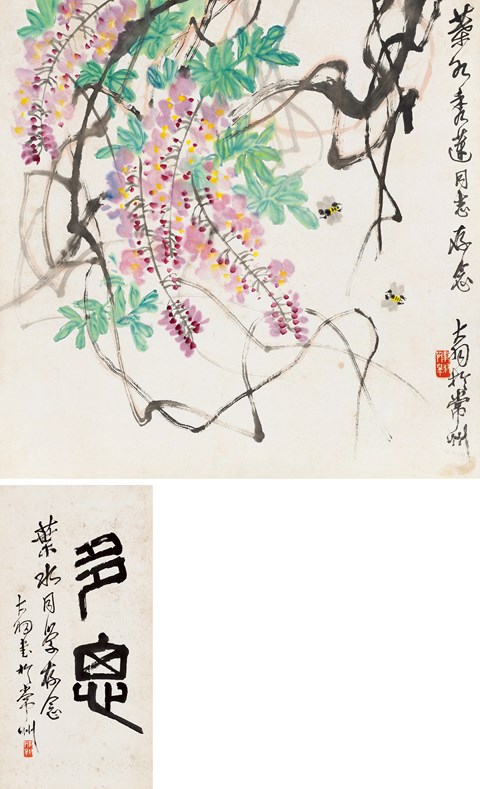 葉水秀蓮同志存念
大羽於常州
多思
葉水同學存念
大羽書於常州